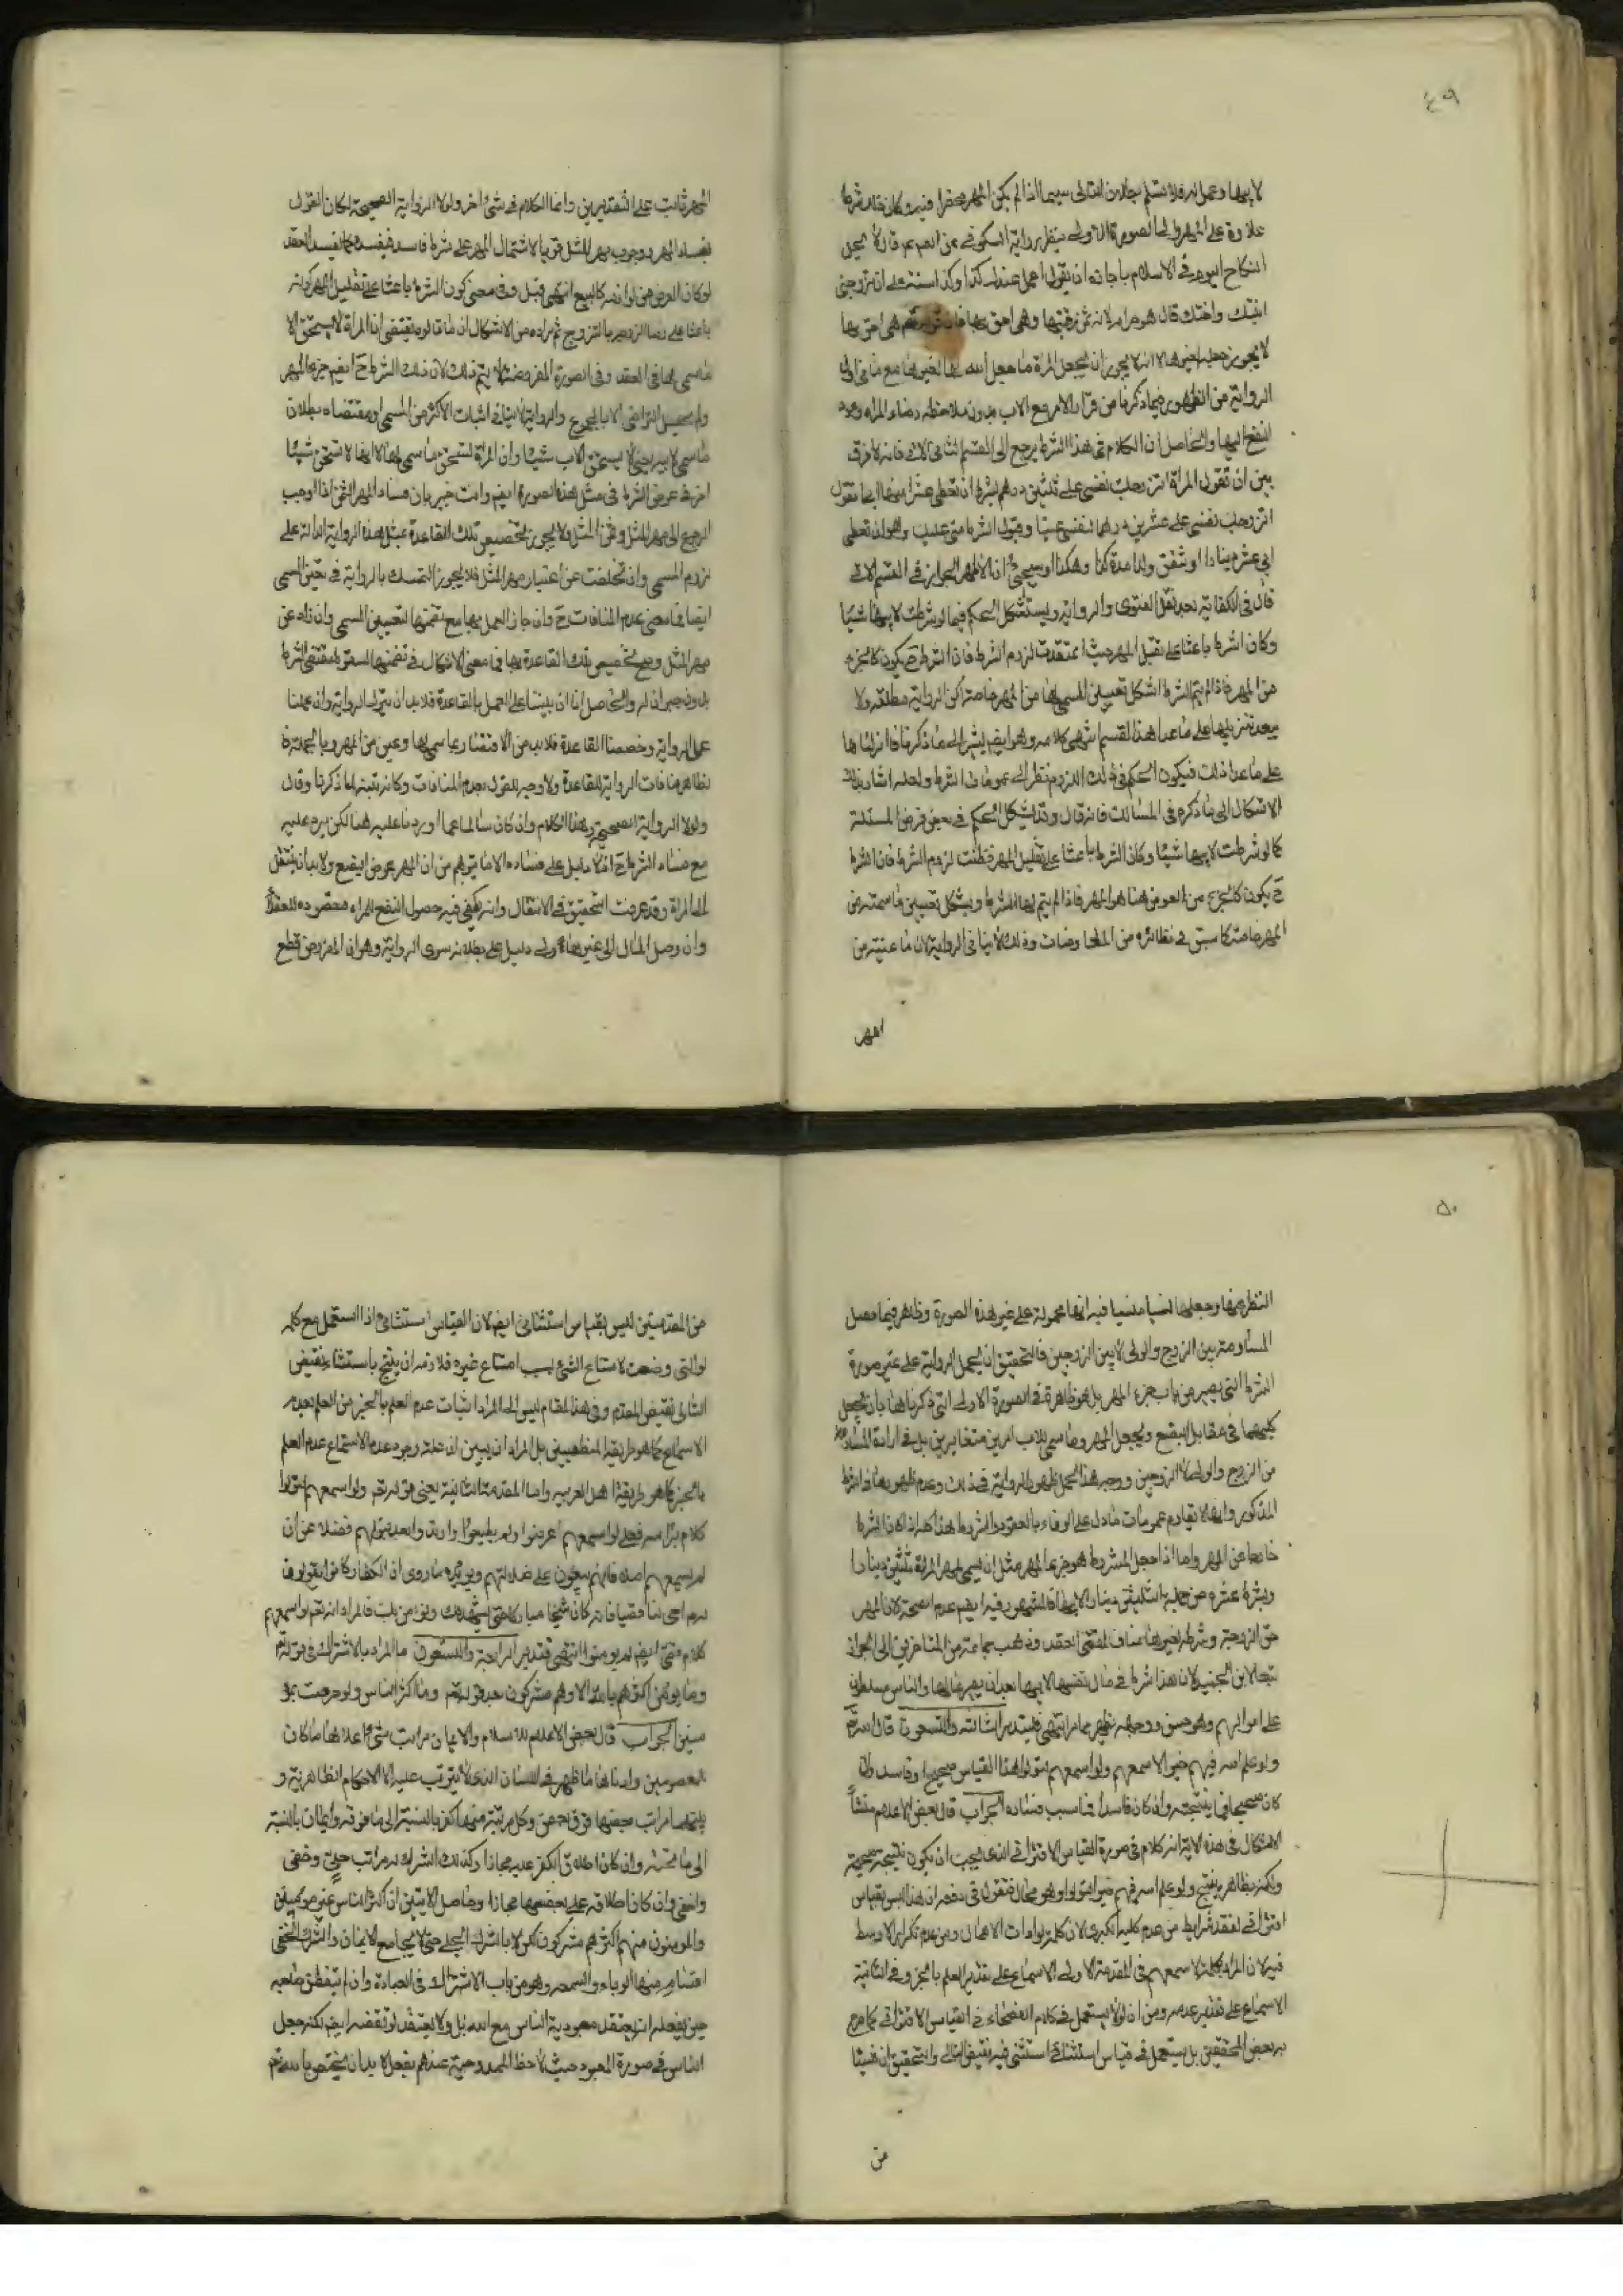 ٤٩
لابيها وعمل له فلا نسلم بطلان التالى سيما اذا لم يكن المهر محقرا فيه وكان ما شرطه
علاوة على المهر والى الصورة الاولى ينظر رواية السكونى عن الصم عم قال لا يحل
النكاح اليوم فى الاسلام باجارة ان يقول اعمل عندك كذا وكذا سنة على ان تزوجنى
ابنتك واختك قال هو حرام لانه ثمن رقبتها وهى احق بمهرها هى احق بها
لا يجوز جعله لغيرها لا انه لا يجوز ان يجعل المرأة ما جعل الله لها لغيرها مع ما فى
الرواية من الظهور فيما ذكرنا من قرار الامر مع الاب بدون ملاحظة رضاء المراة وعود
النفع اليها والحاصل ان الكلام فى هذا الشرط يرجع الى القسم الثانى الاتى فانه لا فرق
بين ان تقول المرأة اتزوجك نفسى على ثلثين درهم بشرط ان تعطى عشرا منها ابى او تقول
اتزوجك نفسى على عشرين درهما لنفسى وقبول الشرط منى عليك وهو ان تعطى
ابى عشر دينارا او تنفق والدى مدة كذا وهكذا وسيجئ ان الاظهر الجواز فى القسم الاتى
قال فى الكفاية بعد نقل الفتوى والرواية ويستشكل الحكم فيما لو شرطت لابيها شيئا
وكان الشرط باعثا على تقليل المهر حيث اعتقدت لزوم الشرط فان الشرط ح يكون كالجزء
من المهر فاذا لم يتم الشرط اشكل تعيين المسمى لها من المهر خاصة لكن الرواية مطلقة ولا
يبعد تنزيلها على ما عدا هذا القسم انتهى كلامه وهو ايضم يشير الى ما ذكرنا فاذا نزلناها
على ما عدا ذلك فيكون الحكم فى ذلك اللزوم نظرا الى عمومات الشرط ولعله اشار بذلك
الاشكال الى ما ذكره فى المسالك فانه قال وقد يشكل الحكم فى بعض فروض المسئلة
كما لو شرطت لابيها شيئا وكان الشرط باعثا على تقليل المهر فظنت لزوم الشرط فان الشرط
ح يكون كالجزء من العوض هنا هو المهر فاذا لم يتم لها الشرط ويشكل تعيين ما سمته من
المهر خاصة كما سبق فى نظائره من المعاوضات وذلك لا ينافى الرواية لان ما عنيته من
المهر
المهر ثابت على التقديرين وانما الكلام فى شئ اخر ولولا الرواية الصحيحة لكان القول
بفساد المهر ووجوب مهر المثل قويا لاشتمال المهر على شرط فاسد فيفسد كما يفسد العقد
لو كان العوض من لوازمه كالبيع انتهى قيل وفى معنى كون الشرط باعثا على تقليل المهر كونه
باعثا على رضا الزوجة بالتزويج ثم مراده من الاشكال ان ما قالوه يقتضى ان المرأة لا يستحق الا
ما سمى لها فى العقد وفى الصورة المفروضة لا يتم ذلك لان ذلك الشرط ح ايضم جزء المهر
ولم يحصل التراضى الا بالمجموع والرواية لا ينافى اثبات الاكثر من المسمى او مقتضاه بطلان
ما سمى لابيها يعنى لا يستحق الاب شيئا وان المراة تستحق ما سمى لها لا انها لا تستحق شيئا
اخر هو عوض الشرط فى مثل هذه الصورة ايضم وانت خبير بان فساد المهر الثمن اذا اوجب
الرجوع الى مهر المثل وثمن المثل فلا يجوز تخصيص تلك القاعدة بمثل هذه الرواية الدالة على
لزوم المسمى وان تخلفت عن اعتبار مهر المثل فلا يجوز التمسك بالرواية فى تعيين المسمى
ايضا فما معنى عدم المنافات ح وان جاز العمل بها مع تضمنها لتعيين المسمى وان زاد عن
مهر المثل وصح تخصيص تلك القاعدة بها فما معنى الاشكال فى تضمنها لسقوط مقتضى الشرط
بدون جبران له والحاصل انا ان بنينا على العمل بالقاعدة فلا بد ان نترك الرواية وان عملنا
على الرواية وخصصنا القاعدة فلا بد من الاقتفاء بما سمى لها وعين من المهر وبالجملة
فظاهر منافات الرواية للقاعدة ولا وجه للقول بعدم المنافات وكانه تنبه لما ذكرنا وقال
ولولا الرواية الصحيحة وهذا الكلام وان كان سالما عما اوردنا عليه هنا لكن يرد عليه
منع فساد الشرط ح اذ لا دليل على فساده الا ما يتوهم من ان المهر عوض البضع ولا بد ان ينتقل
الى المراة وقد عرفت التحقيق فى الانتقال وانه يكفى فيه حصول النفع المراد مقصوده للعقلاء
وان وصل المال الى غيرها ولا دليل على بطلانه سوى الرواية وهو ان المفروض قطع
٥٠
النظر عنها وجعلها نسيا منسيا فبه انها محمولة على غير هذه الصورة وظاهر فيما فصل
المساومة بين الزوج والولى لا بين الزوجين فالتحقيق ان يحمل الرواية على غير صورة
الشرط التى يصير من باب جزء المهر بل هو ظاهرة فى الصورة الاولى التى ذكرناها بان يجعل
كليهما فى مقابل البضع ويجعل المهر وما سمى للاب امرين متغايرين بل فى ارادة المساومة
من الزوج والولى لا الزوجين ووجه هذا الحمل ظهور الرواية فى ذلك وعدم ظهورها فى الشرط
المذكور وايضا لا يقاوم عمومات ما دل على الوفاء بالعقود والشروط هذا كله اذا كان الشرط
خارجا عن المهر واما اذا جعل المشروط هو جزء المهر مثل ان يسمى لمهر المراة ثلثين دينارا
ويشرط عشرة من جملة الثلثين دينارا لابيها فالمشهور فيه ايضم عدم الصحة لان المهر
حق الزوجة وشرطه لغيرها مناف لمقتضى العقد وذهب جماعة من المتاخرين الى الجواز
تبعا لابن الجنيد لان هذا شرط فى مال نفسها لابيها بعد ان يصير مالها والناس مسلطون
على اموالهم وهو حسن ووجهه يظهر مما مر انتهى فليتدبر الثالثة والتسعون قال الله تع
ولو علم الله فيهم خيرا لاسمعهم ولو اسمعهم لتولوا هذا القياس صحيح او فاسد وان
كان صحيحا فما ينتجه وان كان فاسدا فما سبب فساده الجواب قال بعض الاعلام منشأ
الاشكال فى هذه الاية انه كلام فى صورة القياس الاقترانى الذى يجب ان يكون نتيجته صحيحة
ولكنه بظاهره ينتج ولو علم الله فيهم خيرا لتولوا وهو محال فنقول فى دفعه ان هذا ليس بقياس
اقترانى لفقد شرايطه من عدم كلية الكبرى لان كلمة لو اداة الاهمال ومن عدم تكرار الاوسط
فيه لان المراد بكلمة لاسمعهم فى المقدمة الاولى الاسماع على تقدير العلم بالخير وفى الثانية
الاسماع على تقدير عدمه ومن ان لو لا يستعمل فى كلام الفصحاء فى القياس الاقترانى كما صرح
به بعض المحققين بل يستعمل فى قياس استثنائى استثنى فيه نقيض التالى والتحقيق ان شيئا
من
من المقدمتين ليس بقياس استثنائى ايضم لان القياس استثنائى اذا استعمل مع كلمة
لو التى وضعت لامتناع الشئ بسبب امتناع غيره فلا بد ان ينتج باستثناء نقيض
التالى نقيض المقدم وفى هذا المقام ليس المراد اثبات عدم العلم بالخير من العلم بعدم
الاسماع كما هو طريقة المنطقيين بل المراد ان يبين ان علة وجود عدم الاسماع عدم العلم
بالخير كما هو طريقة اهل العربية واما المقدمة الثانية يعنى قوله تعم ولو اسمعهم لتولوا
كلام براسه فهى لو اسمعهم اعرضوا ولم يطيعوا واريد وابعد تولهم فضلا عن ان
لم يسمعهم الله فانهم يبقون على ضلالتهم ويؤيده ما روى ان الكفار كانوا يقولون
لرسول الله احى لنا قصيا فانه كان شيخا مباركا حتى يشهد لك ونؤمن بك فالمراد انه تعم لو اسمعهم
كلام قصى ايضم لم يؤمنوا انتهى فتدبر الرابعة والتسعون ما المراد بالاشتراك فى قوله تع
وما يؤمن اكثرهم بالله الا وهم مشركون بعد قوله تعم وما اكثر الناس ولو حرصت بمؤ
منين الجواب قال بعض الاعلام للاسلام والايمان مراتب شتى اعلاها ما كان
للمعصومين وادناها ما ظهر فى اللسان الذى لا يترتب عليه الا الاحكام الظاهرية و
بينهما مراتب بعضها فوق بعض وكل مرتبة منها كفر بالنسبة الى ما فوقه وايمان بالنسبة
الى ما تحته وان كان اطلاق الكفر عليه مجازا وكذلك الشرك له مراتب جلى وخفى
واخفى وان كان اطلاقه على بعضها مجازا وحاصل الايتين ان اكثر الناس غير مؤمنين
والمؤمنون منهم اكثرهم مشركون لكن لا بالشرك الجلى حتى لا يجامع الايمان والشرك الخفى
اقسام منها الرياء والسمعة وهو من باب الاشتراك فى العبادة وان لم يتفطن صاحبه
حين يفعله انه يعتقد معبودية الناس مع الله بل ولا يعتقد لو تفحصه ايضم لكنه جعل
الناس فى صورة المعبود حيث لاحظ المدوحية عندهم بفعله لا بد ان يختص بالله تعم